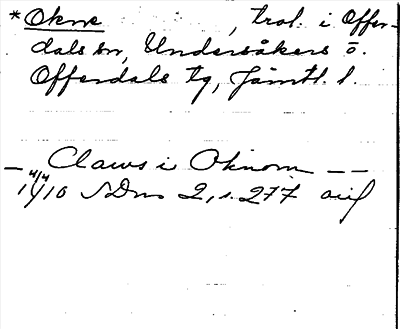 *Okne , trol. i Offer-
dals sn, Undersåkers o.
Offerdals tg, Jämtl. l.
— Claws i Oknom — —
14/4 1410 SDns 2, s. 277 avf